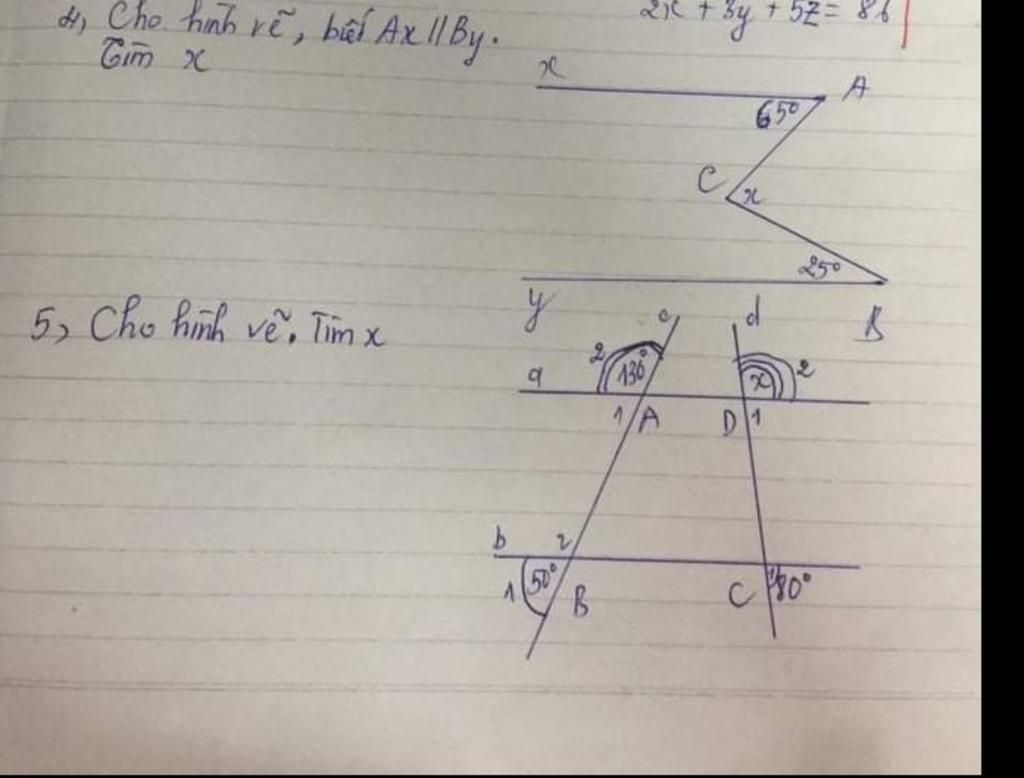 2x + 3y + 5z = 86
4, Cho hình vẽ, biết Ax // By.
Tìm x
x
A
65°
C
x
25°
y
B
5, Cho hình vẽ. Tìm x
c
d
2
130°
x
2
a
1
A
D
1
b
2
1
50°
B
C
80°